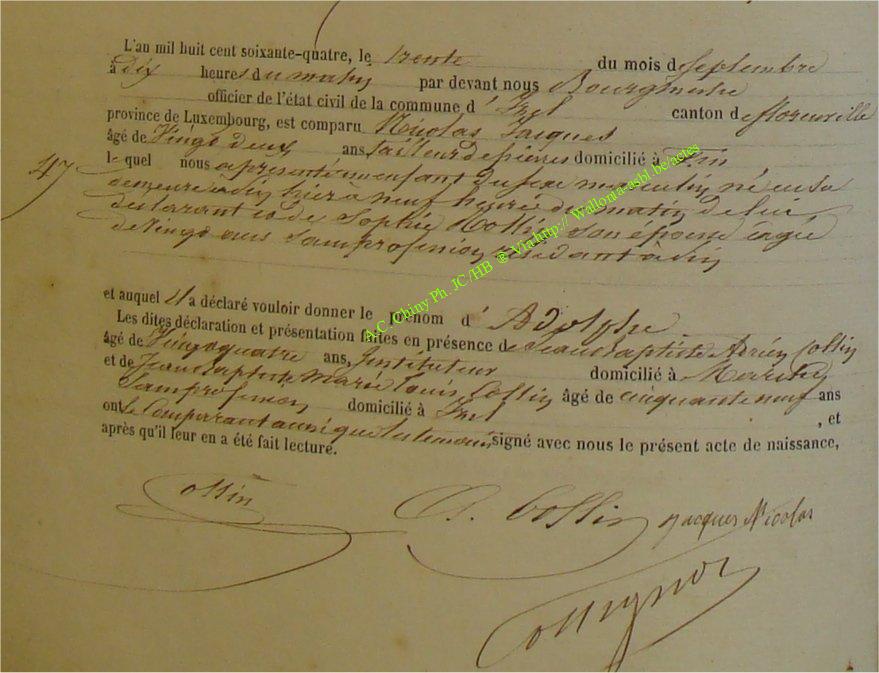 L'an mil huit cent soixante-quatre, le trente du mois de Septembre
à dix heures du matin par devant nous Bourgmestre
officier de l'état civil de la commune d'Izel canton de florenville
province de Luxembourg, est comparu Nicolas Jacques
47
âgé de Vingt deux ans, tailleur de pierres domicilié à
lequel nous a présenté un enfant du sexe masculin né en sa
demeure hier à neuf heures du matin de lui
déclarant et de Sophie Collin son épouse âgée
de Vingt ans Sans profession résidant à
et auquel il a déclaré vouloir donner le prénom d'Adolphe
Les dites déclaration et présentation faites en présence de Jean Baptiste Adrien Collin
âgé de Vingt quatre ans, Instituteur domicilié à
et de Jean Baptiste Marie Louis Collin âgé de cinquante neuf ans
Sans profession domicilié à Izel, et
ont le Comparant ainsi que les temoins signé avec nous le présent acte de naissance,
après qu'il leur en a été fait lecture.
Collin
A. Collin
Jacques Nicolas
Collignon
A.C. Chiny Ph. JC/HB ® Via http:// Wallonia-asbl.be/actes